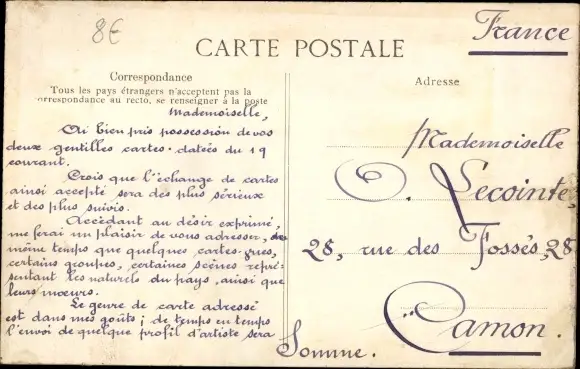 8€
France
CARTE POSTALE
Correspondance
Tous les pays étrangers n'acceptent pas la
correspondance au recto, se renseigner à la poste
Mademoiselle,
Ai bien pris possession de vos
deux gentilles cartes datées du 19
courant.
Crois que l'échange de cartes
ainsi accepté sera des plus sérieux
et des plus suivis.
Accédant au désir exprimé,
me ferai un plaisir de vous adresser, en
même temps que quelques cartes-vues,
certains groupes, certaines scènes repré-
sentant les naturels du pays, ainsi que
leurs mœurs.
Le genre de carte adressé
est dans mes goûts ; de temps en temps
l'envoi de quelque profil d'artiste sera
Adresse
Mademoiselle
O. Lecointe,
28, rue des Fossés, 28
Camon.
Somme.